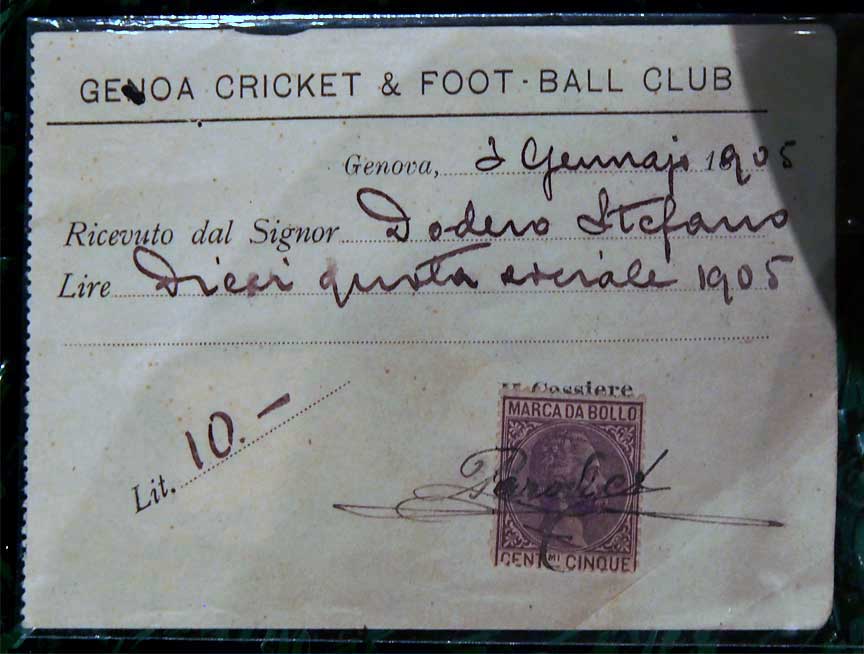 GENOA CRICKET & FOOT-BALL CLUB
Genova, 3 Gennajo 1905
Ricevuto dal Signor Dodero Stefano
Lire Dieci quota sociale 1905
Lit. 10.-
Il Cassiere
MARCA DA BOLLO
CENTMI CINQUE